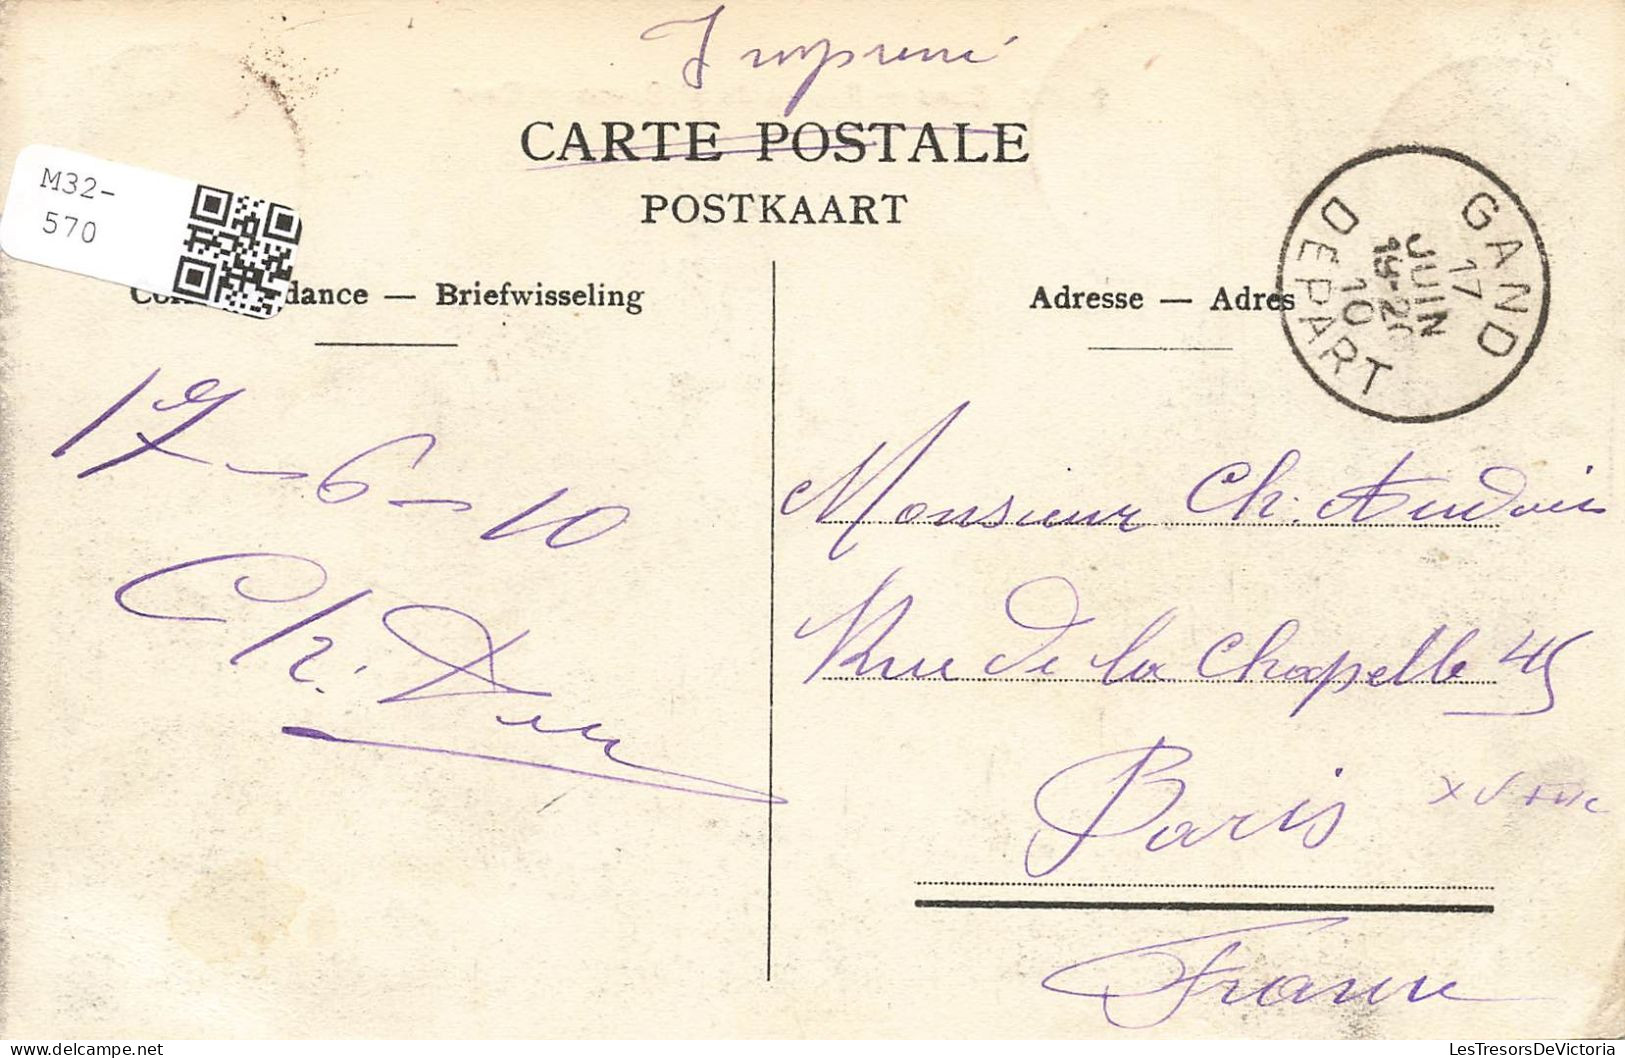 Imprimé
CARTE POSTALE
POSTKAART
M32-
570
dance — Briefwisseling
Adresse — Adres
GAND
17
JUIN
19-20
10
DEPART
17-6-10
Ch.
Monsieur Ch. Audouin
Rue de la Chapelle 45
Paris
France
LesTresorsDeVictoria